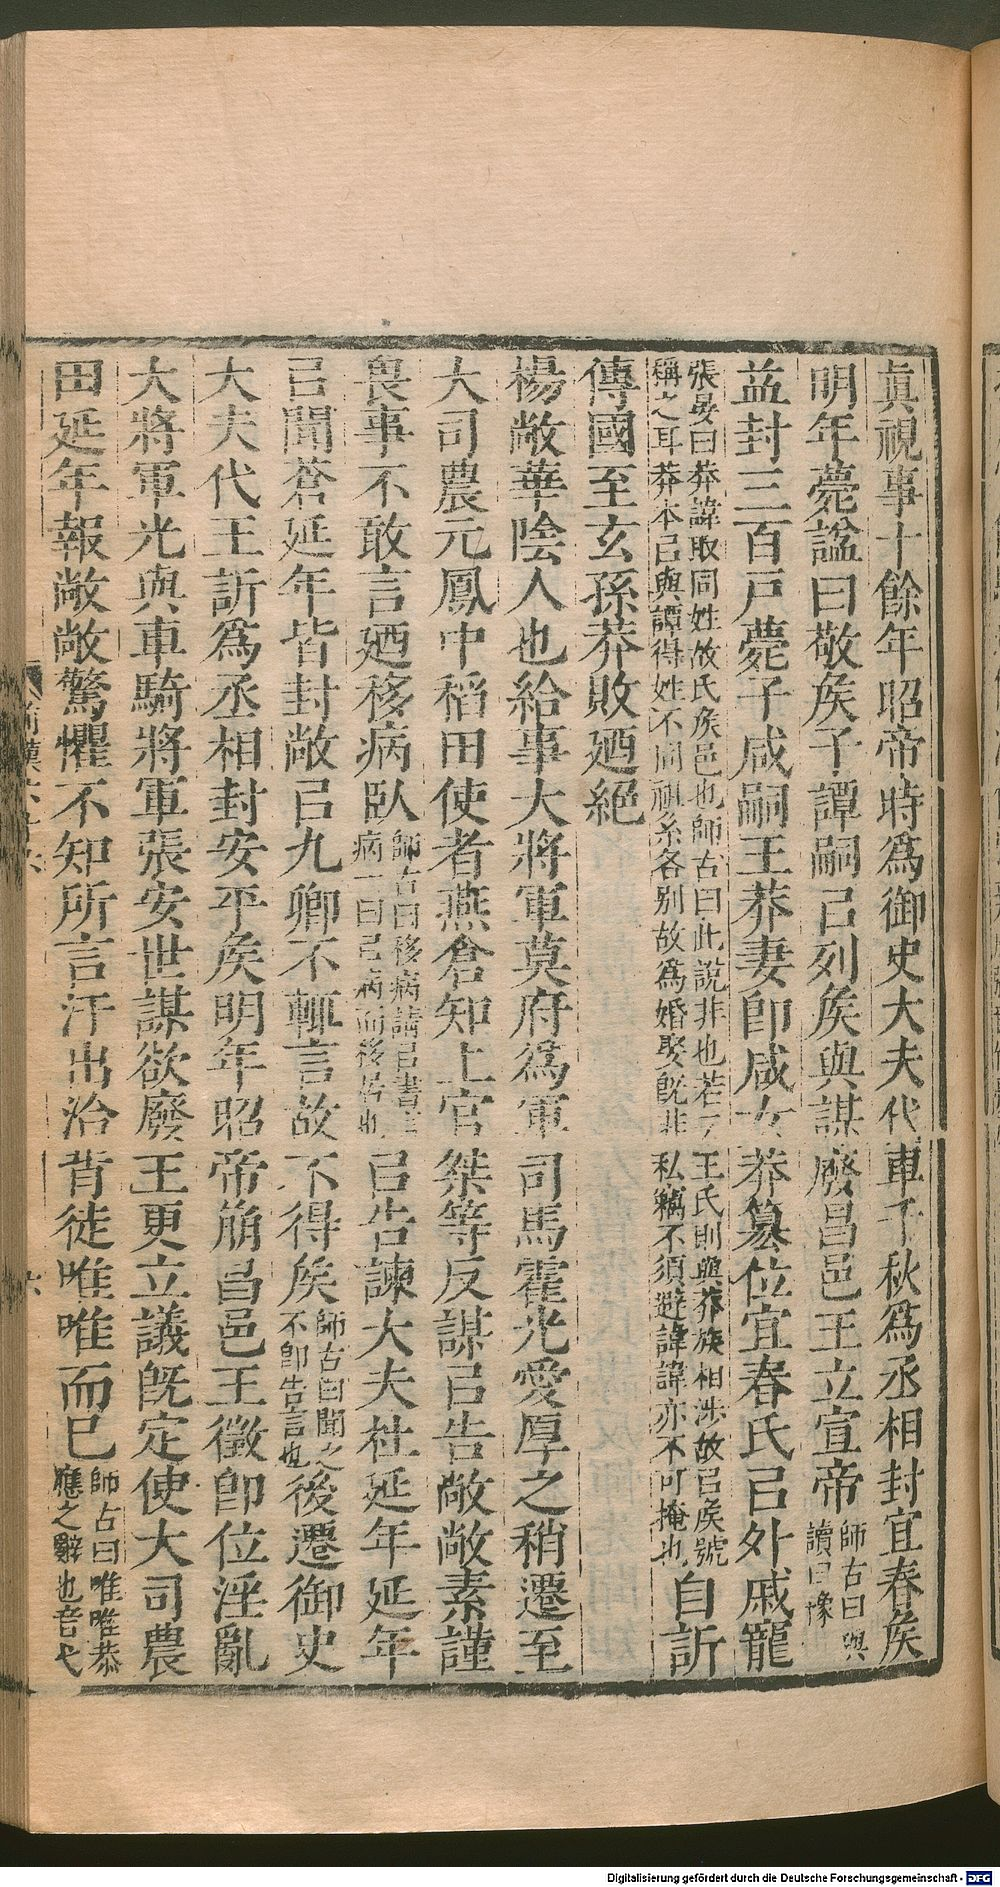 眞視事十餘年昭帝時爲御史大夫代車千秋爲丞相封宜春矦
明年薨諡曰敬矦子譚嗣㠯列矦與謀廢昌邑王立宣帝師古曰與讀曰豫
益封三百戸薨子咸嗣王莽妻卽咸女莽簒位宜春氏㠯外戚寵
張晏曰莽諱取同姓故氏矦邑也師古曰此說非也若云王氏則與莽族相涉故㠯矦號稱之耳莽本㠯與譚得姓不同祖系各別故爲婚娶旣非私竊不須避諱諱亦不可掩也自訢
傳國至玄孫莽敗廼絕
楊敞華陰人也給事大將軍莫府爲軍司馬霍光愛厚之稍遷至
大司農元鳳中稻田使者燕倉知上官桀等反謀㠯告敞敞素謹
畏事不敢言廼移病臥師古曰移病謂㠯書言病一曰㠯病而移居也㠯告諫大夫杜延年延年
㠯聞蒼延年皆封敞㠯九卿不輒言故不得矦師古曰聞之不卽告言也後遷御史
大夫代王訢爲丞相封安平矦明年昭帝崩昌邑王徵卽位淫亂
大將軍光與車騎將軍張安世謀欲廢王更立議旣定使大司農
田延年報敞敞驚懼不知所言汗出洽背徒唯唯而已師古曰唯唯恭應之辭也音弋
六
Digitalisierung gefördert durch die Deutsche Forschungsgemeinschaft - DFG